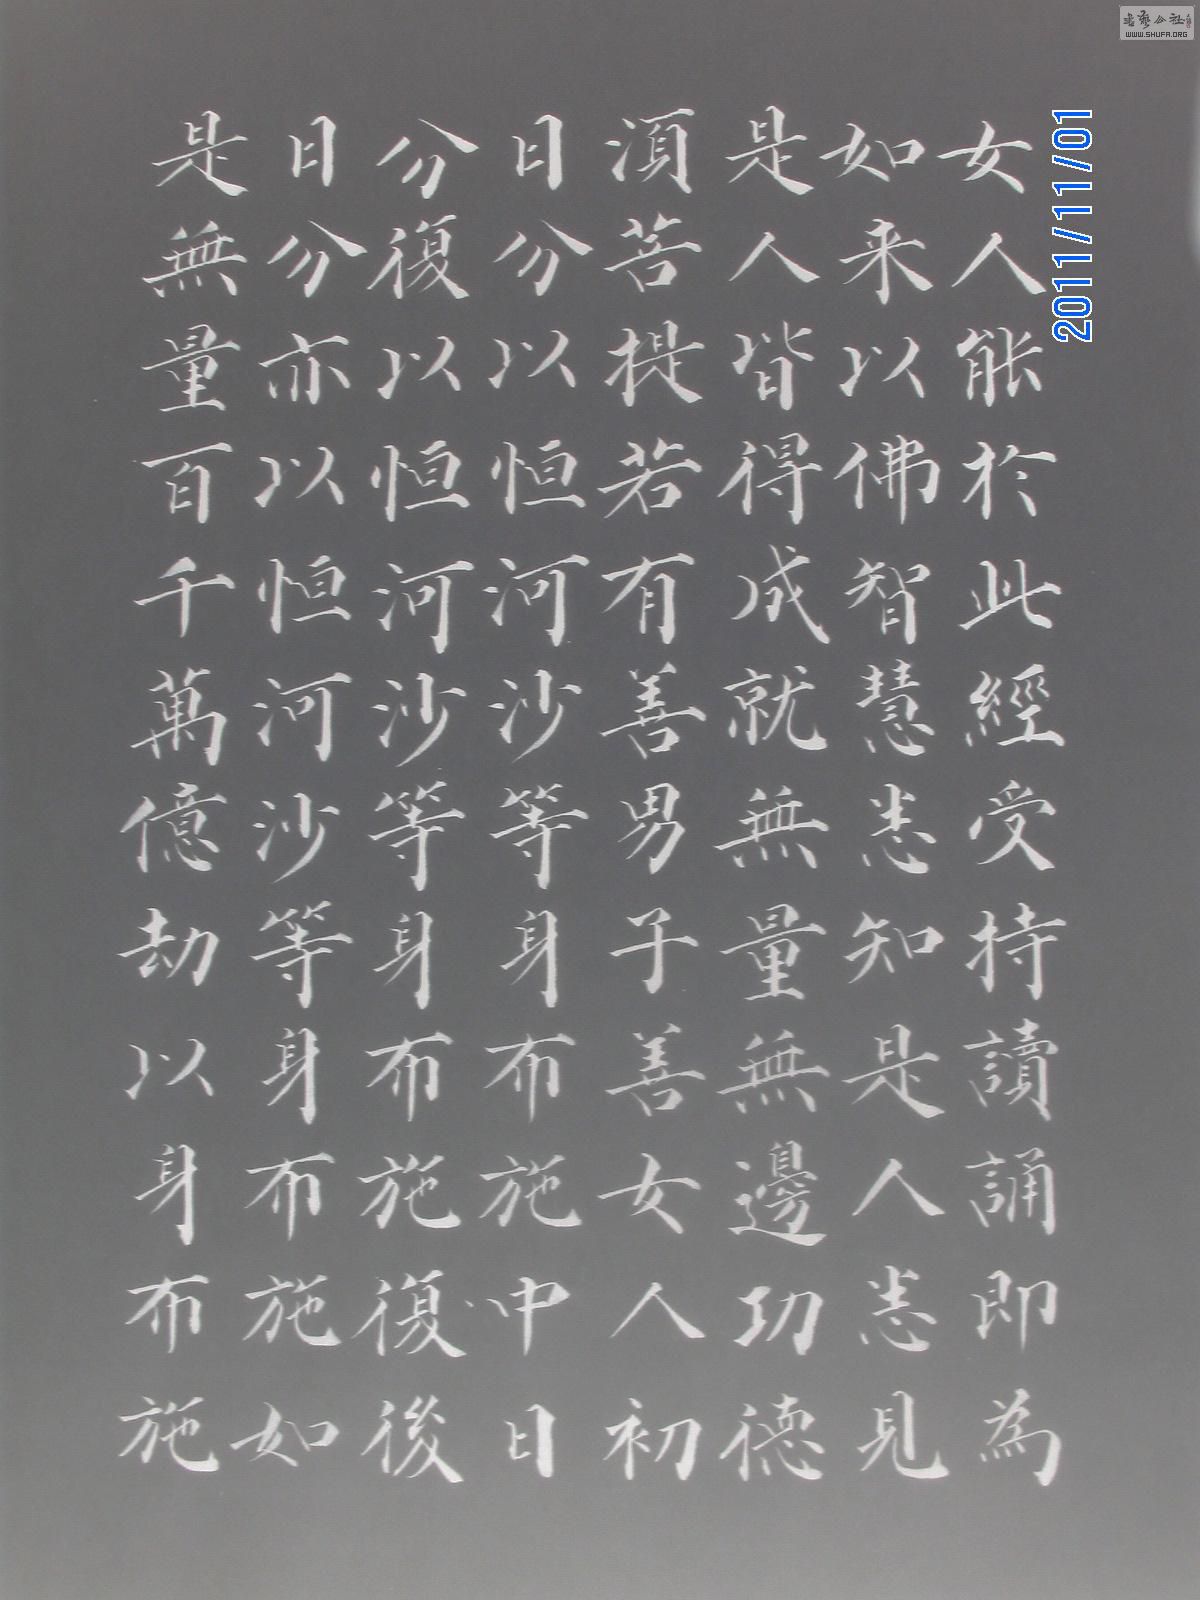 女人能於此經受持讀誦即為
如来以佛智慧悉知是人悉見
是人皆得成就無量無邊功德
湏菩提若有善男子善女人初
日分以恒河沙等身布施中日
分復以恒河沙等身布施復後
日分亦以恒河沙等身布施如
是無量百千萬億劫以身布施
2011/11/01
WWW.SHUFA.ORG